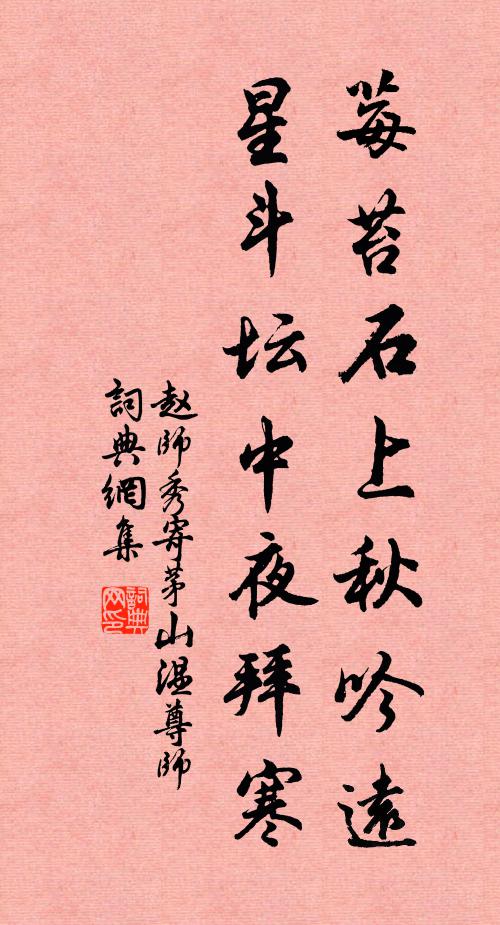 莓苔石上秋吟遠
星斗坛中夜拜寒
赵師秀寄茅山温尊師
詞典網集
詞典
网印